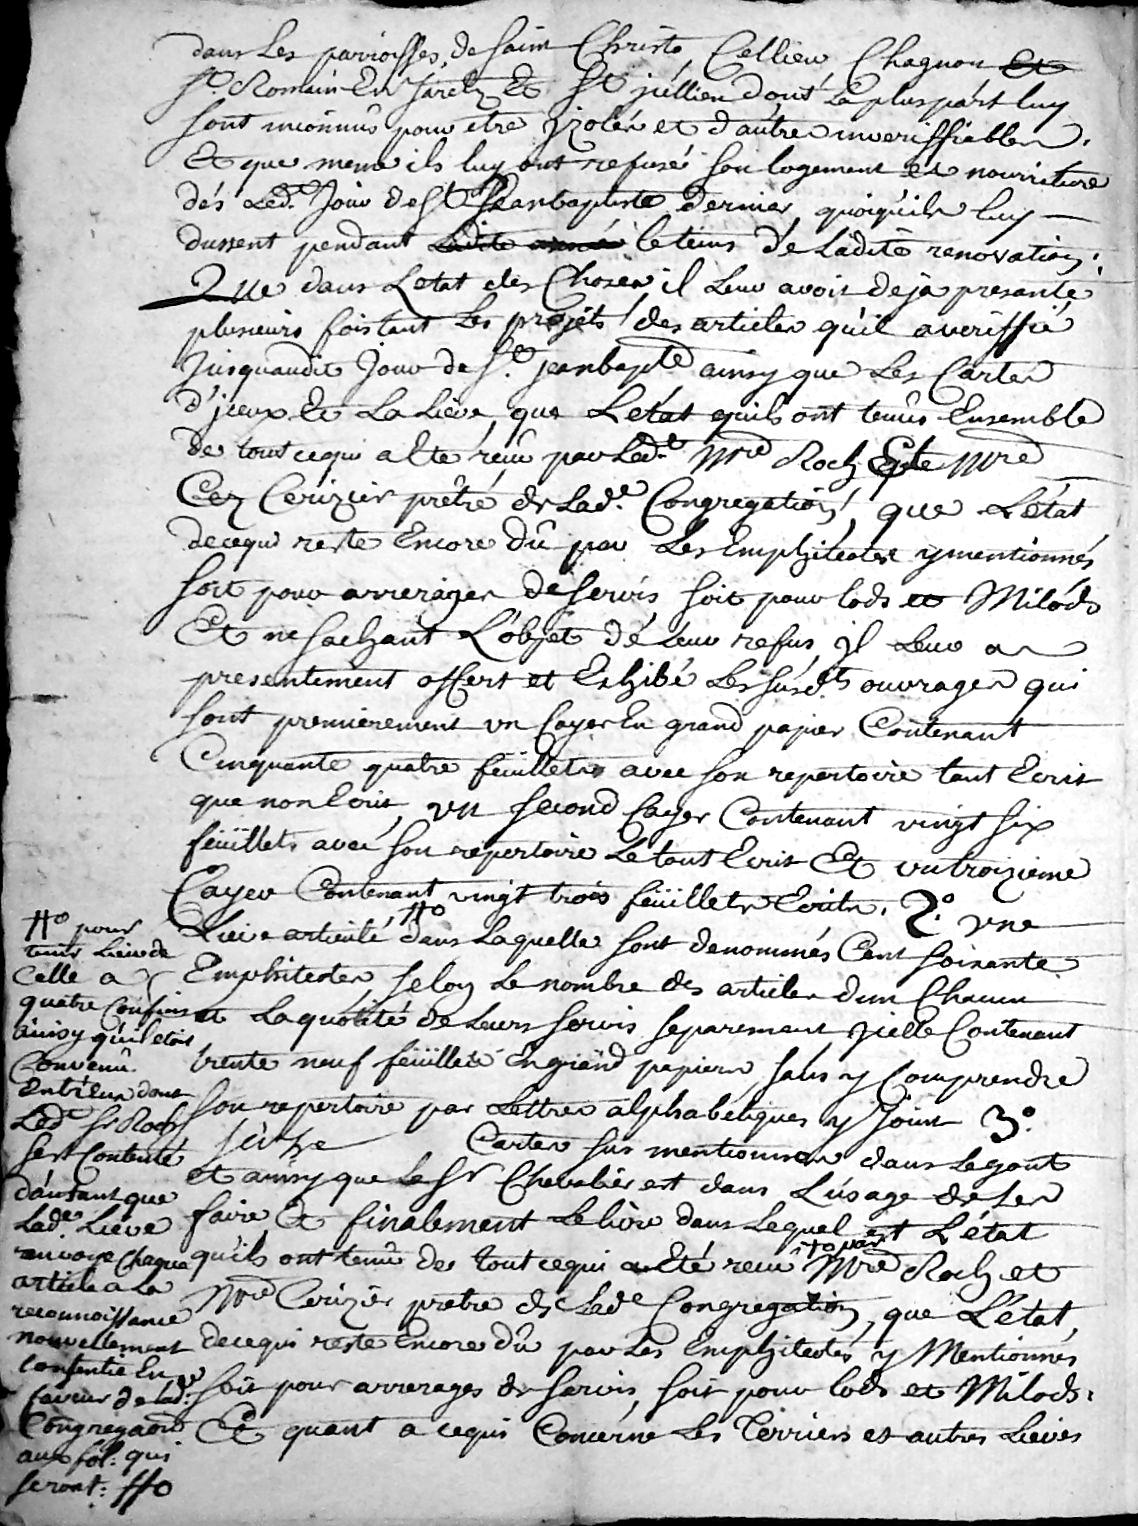 dans Les parroisses de Saint Christo, Cellieu Chagnon Et
St. Romain En Jaretz Et St jullien dont La pluspart luy
sont inconnus pour etre jzolés et d'autres inveriffiables.
Et que meme ils luy ont refusé son logement et nourriture
dés Led. Jour de St Jeanbaptiste dernier, quoiqu'ils luy
dussent pendant Ladite année le tems de Ladite renovation.
Que dans Letat des Choses il Leur avoit deja presanté
plusieurs fois tant Les projets des articles qu'il a veriffié
Jusquaudit Jour de St. jeanbapte ainsy que Les Cartes
d'jceux Et La Liève, que Létat quils ont tenûs Ensemble
de tout cequi a Eté reçu par Led.t Mre Roch Et Mre
Cerizier prêtre de Lad.e Congregation, que Létat
decequi reste Encore dû par Les Emphiteotes y mentionnés
soit pour arrerages de servis soit pour lods et Milods
Et ne sachant L'objet de Leur refus, jl Leur a
presentement offert et Exhibé Les susdts ouvrages qui
sont premierement un Cayer En grand papier Contenant
Cinquante quatre feüillets avec son repertoire tant Ecrit
que non Ecrit, un second Cayer Contenant vingt six
feüillets avec son repertoire Le tout Ecrit Et un troizieme
Cayer Contenant vingt trois feüillets Ecrits. 2.° une
Lieve articulé #o dans Laquelle sont denommés Cent soixante
Emphiteotes selon Le nombre des articles d'un Chacun
et La quotité de Leurs servis separement, jcelle Contenant
trente neuf feüillets En grand papiers, sans y Comprendre
son repertoire par Lettres alphabetiques y Joint 3.°
Cartes sus mentionnés dans Le gout
et ainsy que Le Sr Chevalier est dans L'usage de Les
faire Et finalement Le livre dans Lequel est L'état
qu'ils ont tenû de tout cequi a Eté reçu #o par Mre Roch et
Mre Cerizier pretre de Lade Congregation, que L'état,
decequi reste Encore dû par Les Emphiteotes y Mentionnés
soit pour arrerages de servis, soit pour lods et Milods.
Et quant a cequi Concerne Les Terriers et autres Lieves
#o pour
tenir Lieu de
Celle a
quatre Confins
ainsy qu'il etoit
Convenû
Entr'Eux dont
Led Sr Roch
sest Contenté
d'autant que
Lade. Liève
renvoye Chaque
article a La
reconnoissance
nouvellement
Consentie En
faveur de Lade.
Congregaon
aux fol: qui
seront: #o